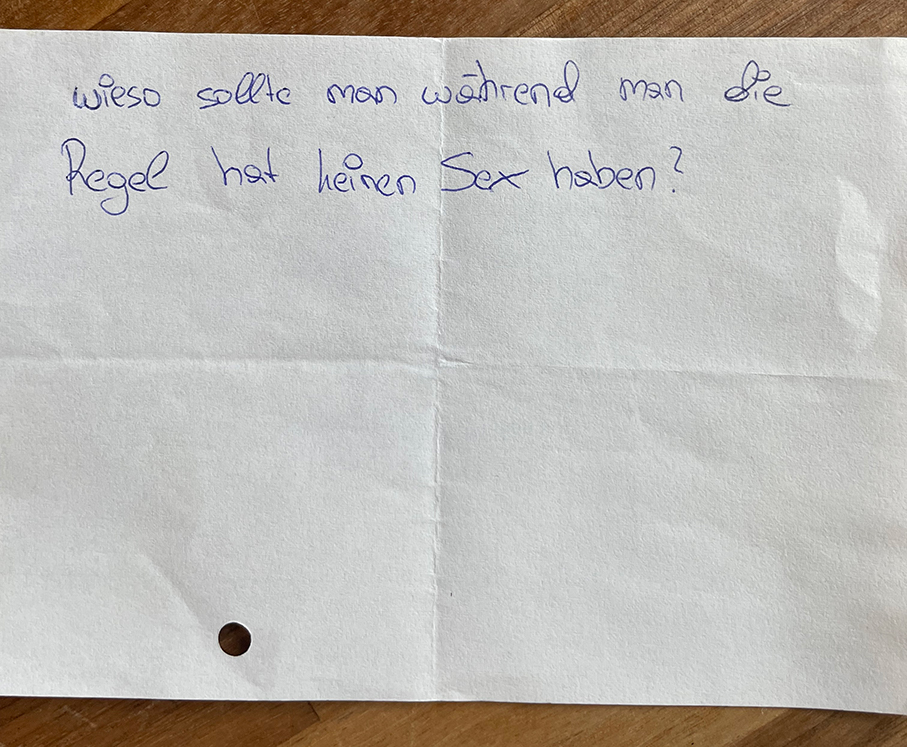 wieso sollte man während man die
Regel hat keinen Sex haben?